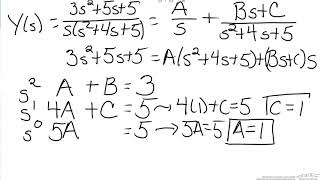 Y(s) = (3s²+5s+5)/(s(s²+4s+5)) = A/s + (Bs+C)/(s²+4s+5)
3s²+5s+5 = A(s²+4s+5)+(Bs+C)s
s² A + B = 3
s¹ 4A + C = 5 → 4(1)+C=5 C=1
s⁰ 5A = 5 → 5A=5 A=1